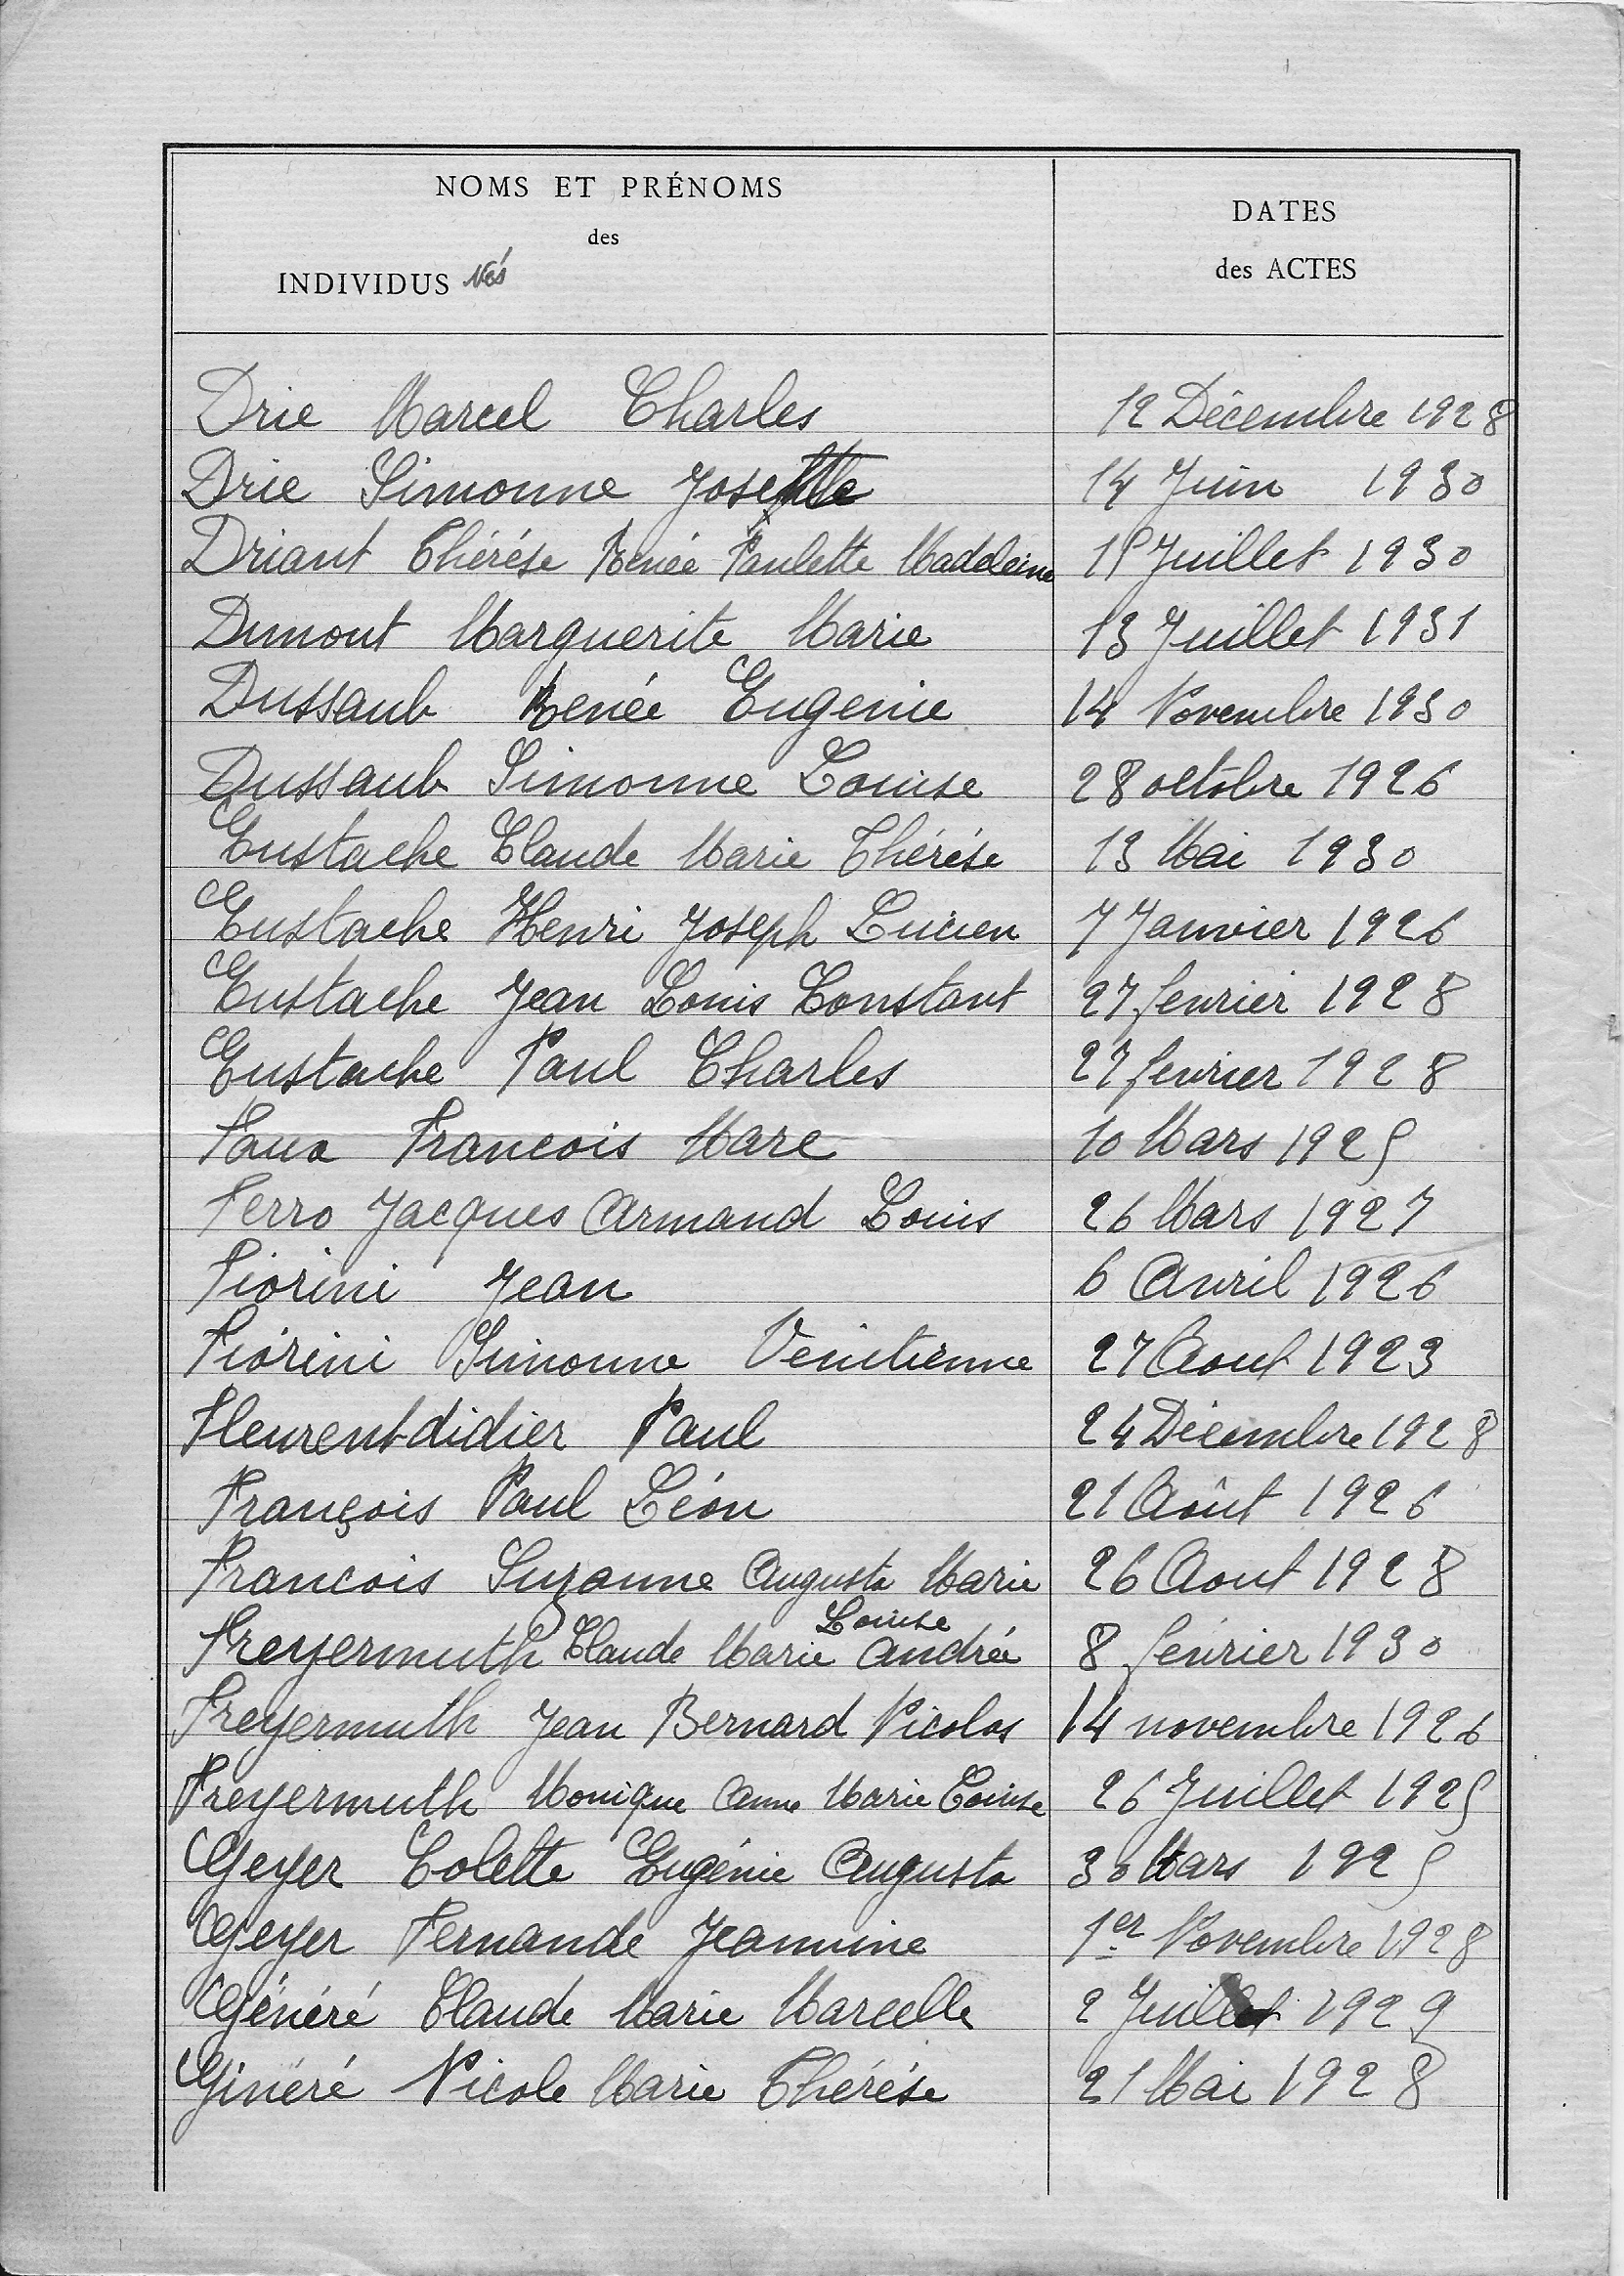 NOMS ET PRÉNOMS
des
INDIVIDUS Nés
DATES
des ACTES
Drie Marcel Charles 12 Décembre 1928
Drie Simonne Josette 14 Juin 1930
Driant Thérése Renée Paulette Madeleine 15 Juillet 1930
Dumont Marguerite Marie 13 Juillet 1931
Dussaub Renée Eugenie 14 Novembre 1930
Dussaub Simonne Louise 28 octobre 1926
Eustache Claude Marie Thérése 13 Mai 1930
Eustache Henri Joseph Lucien 7 Janvier 1926
Eustache Jean Louis Constant 27 fevrier 1928
Eustache Paul Charles 27 fevrier 1928
Faux Francois Marc 10 Mars 1925
Ferro Jacques Armand Louis 26 Mars 1927
Fiorini Jean 6 Avril 1926
Fiorini Simonne Venitienne 27 Aout 1923
Fleurentdidier Paul 24 Décembre 1928
François Paul Léon 21 Août 1926
Francois Suzanne Augusta Marie 26 Aout 1928
Louise
Freyermuth Claude Marie Andrée 8 février 1930
Freyermuth Jean Bernard Nicolas 14 novembre 1926
Freyermuth Monique Anne Marie Louise 26 Juillet 1925
Geyer Colette Eugénie Augusta 30 Mars 1925
Geyer Fernande Jeannine 1er Novembre 1928
Généré Claude Marie Marcelle 2 Juillet 1929
Généré Nicole Marie Thérése 21 Mai 1928